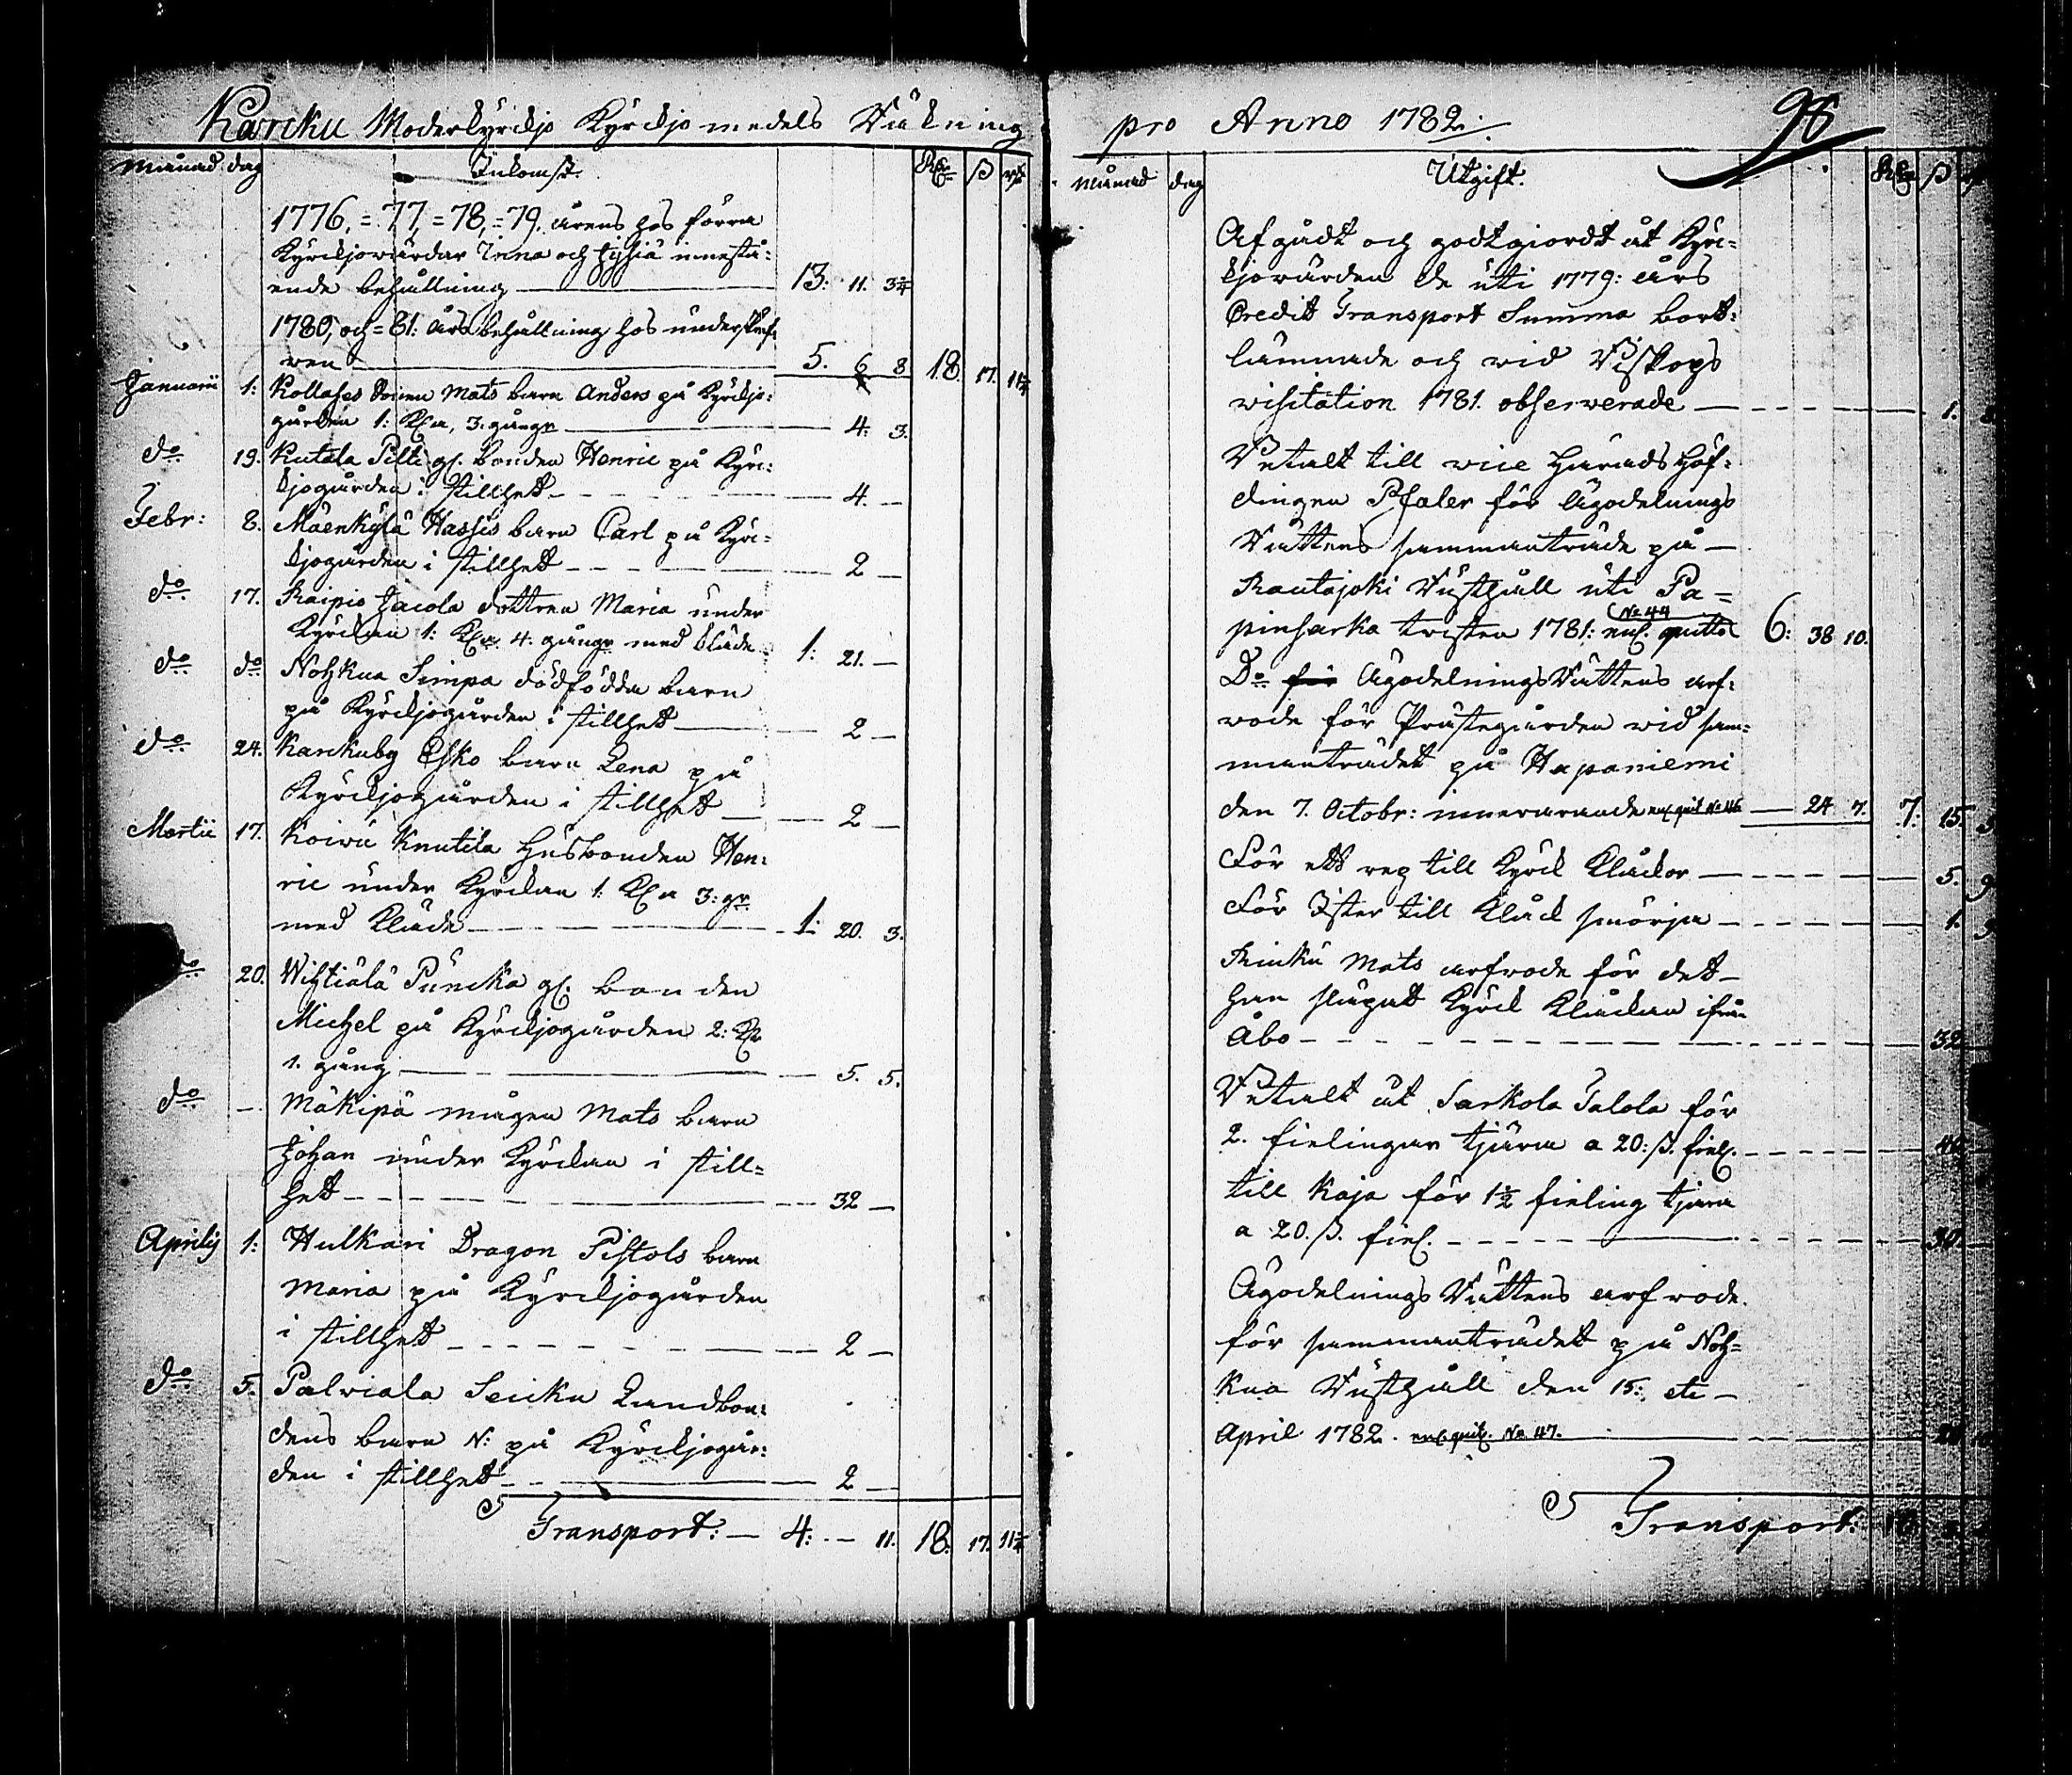 Karcku Moderkyrckjo Kyrckjo medels Räkning
Månad dag Inkomst. Rdr ß rs
1776, = 77, = 78, = 79. årens hos förra
Kyrckjovärdar Inna och innestå-
ende behållning 13: 11. 3¼
1780, och = 81: års behållning hos underskrif
ven 5. 6 8 18. 17. 11¼
Januarii 1: Sonen Mats barn Anders på Kyrckjo-
gården 1: Kl:a, 3. gångr 4: 3.
do 19. Kutala Pilti gl. bonden Henric på Kyrc-
kjogården i stillhet 4 —
Febr: 8. Mäenkylä Hassis barn Carl på Kyrc-
kjogården i stillhet 2 —
do 17. Raipio Jacola dottren Maria under
Kyrckan 1: Kl:a 4: gångr med kläde 1: 21. —
do do Nohkua Simpa dödfödda barn
på Kyrckjogården i stillhet 2 —
do 24. Karckuby Esko barn Lena på
Kyrckjogården i stillhet 2 —
Martii 17. Koivu Knutila Husbonden Hen-
ric under Kyrckan 1: Kl:a 3: gr
med Kläde 1: 20. 3.
do 20. Wihtiälä Puncka gl. bonden
Michel på Kyrckjogården 2: Kl:r
1. gång 5. 5.
do — Mäkipä mågen Mats barn
Johan under Kyrckan i still-
het 32 —
Aprilis 1: Hulkari Dragon Pistols barn
Maria på Kyrckjogården
i stillhet 2 —
do 5. Palviala Seicku Landbon-
dens barn N: på Kyrckjogår-
den i stillhet 2 —
Transport: — 4: — 11. 18. 17. 11¼
pro Anno 1782. 98
Månad dag Utgift. Rdr ß
Afgådt och godtgiordt åt Kyrc-
kjovärden de uti 1779: års
Credit Transport Summa bort-
lämnade och vid Biskops
visitation 1781. observerade 1.
Betalt till vice Härads Höf-
dingen Pfaler för Ägodelnings
Rättens sammanträde på
Rautajoki Rusthåll uti Pa-
pinsarka tvisten 1781: enl. quitto No 44 6: 38 10.
Do för ÄgodelningsRättens arf-
vode för Prästegården vid sam-
manträdet på Hapaniemi
den 7. Octobr: innevarande enl. quit No 46 24 7. 7. 15.
För ett rep till Kyrck Klåckor 5. 9
För Ister till Klåck smörja 1.
Mats arfvode för det
han släpat Kyrck Klåckan ifrån
Åbo 32
Betalt åt Sarkola Talola för
2. fielingar tjära a 20: ß. fiel. 40
till Kaja för 1½ fieling tjära
a 20. ß. fiel. 30
Ägodelnings Rättens arfvode
för sammanträdet på Noh-
kua Rusthåll den 15: etc
April 1782. enl. quit. No 47.
Transport: